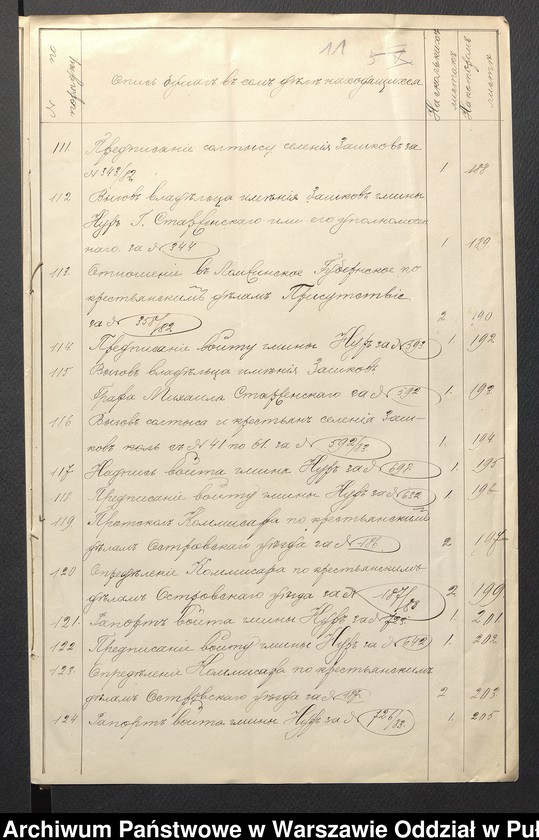 11
№ по порядку
Опись бумагъ въ семъ дѣлѣ находящихся
На сколькихъ листахъ
На которомъ листѣ
111 Предписаніе солтысу селенія Зашковъ за
№ 343/82 1 188
112 Вызовъ владѣльца имѣнія Зашковъ гмины
Нуръ Г. Старженскаго или его уполномочен
наго за № 344 1 189
113 Отношеніе въ Ломжинское Губернское по
крестьянскимъ дѣламъ Присутствіе
за № 358/82 2 190
114 Предписаніе войту гмины Нуръ за № 393 1 192
115 Вызовъ владѣльца имѣнія Зашковъ
Графа Михаила Старженскаго за № 392 1 193
116 Вызовъ солтыса и крестьянъ селенія Заш-
ковъ съ № 41 по 61 за № 592/83 1 194
117 Надпись войта гмины Нуръ за № 698 1 195
118 Предписаніе войту гмины Нуръ за № 632 1 196
119 Протоколъ Коммисара по крестьянскимъ
дѣламъ Островскаго уѣзда за № 186 2 197
120 Опредѣленіе Коммисара по крестьянскимъ
дѣламъ Островскаго уѣзда за № 187/83 2 199
121. Рапортъ войта гмины Нуръ за № 725 1 201
122 Предписаніе войту гмины Нуръ за № 642 1. 202
123. Опредѣленіе Коммисара по крестьянскимъ
дѣламъ Островскаго уѣзда за № 187 2 203
124 Рапортъ войта гмины Нуръ за № 726/83 1 205
Archiwum Państwowe w Warszawie Oddział w Puł